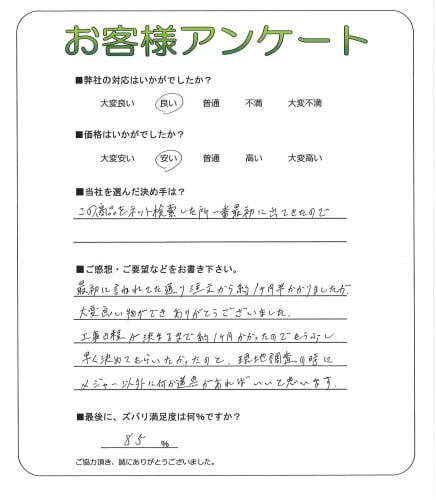 お客様アンケート
■弊社の対応はいかがでしたか？
大変良い 良い 普通 不満 大変不満
■価格はいかがでしたか？
大変安い 安い 普通 高い 大変高い
■当社を選んだ決め手は？
この商品をネット検索した所一番最初に出てきたので
■ご感想・ご要望などをお書き下さい。
最初に言われてた通り注文から約1ヶ月半かかりましたが、
大変良い物ができ ありがとうございました。
工事日程が決まるまで約1ヶ月かかったのでもう少し
早く決めてもらいたかったのと、現地調査の時に
メジャー以外に何か道具があればいいと思います。
■最後に、ズバリ満足度は何%ですか？
85 %
ご協力頂き、誠にありがとうございました。